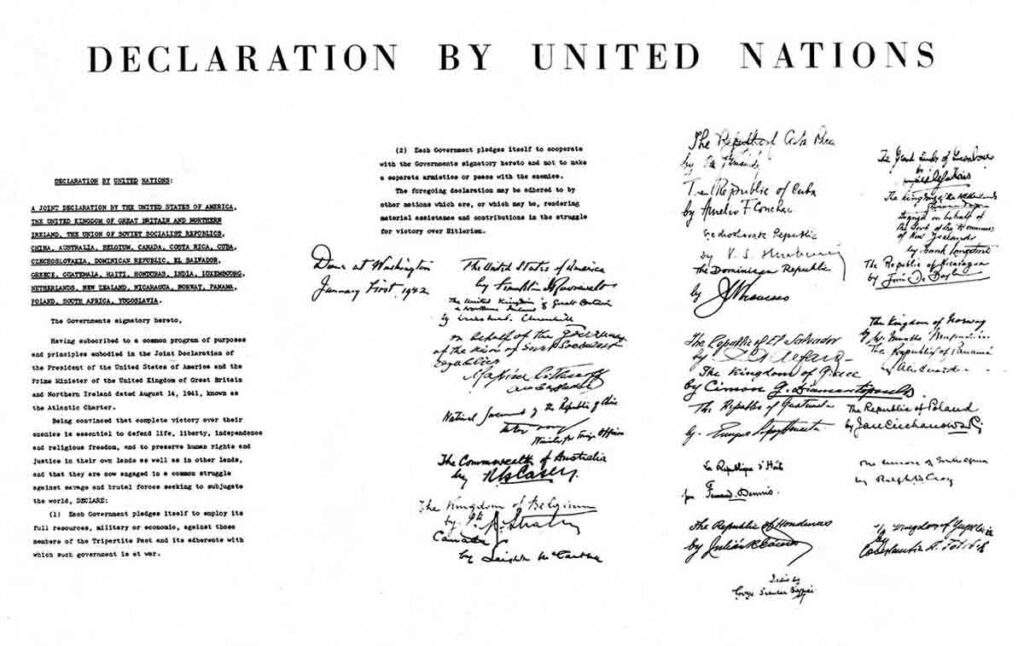 DECLARATION BY UNITED NATIONS
DECLARATION BY UNITED NATIONS:
A JOINT DECLARATION BY THE UNITED STATES OF AMERICA,
THE UNITED KINGDOM OF GREAT BRITAIN AND NORTHERN
IRELAND, THE UNION OF SOVIET SOCIALIST REPUBLICS,
CHINA, AUSTRALIA, BELGIUM, CANADA, COSTA RICA, CUBA,
CZECHOSLOVAKIA, DOMINICAN REPUBLIC, EL SALVADOR,
GREECE, GUATEMALA, HAITI, HONDURAS, INDIA, LUXEMBOURG,
NETHERLANDS, NEW ZEALAND, NICARAGUA, NORWAY, PANAMA,
POLAND, SOUTH AFRICA, YUGOSLAVIA.
The Governments signatory hereto,
Having subscribed to a common program of purposes
and principles embodied in the Joint Declaration of
the President of the United States of America and the
Prime Minister of the United Kingdom of Great Britain
and Northern Ireland dated August 14, 1941, known as
the Atlantic Charter.
Being convinced that complete victory over their
enemies is essential to defend life, liberty, independence
and religious freedom, and to preserve human rights and
justice in their own lands as well as in other lands,
and that they are now engaged in a common struggle
against savage and brutal forces seeking to subjugate
the world, DECLARE:
(1) Each Government pledges itself to employ its
full resources, military or economic, against those
members of the Tripartite Pact and its adherents with
which such government is at war.
(2) Each Government pledges itself to cooperate
with the Governments signatory hereto and not to make
a separate armistice or peace with the enemies.
The foregoing declaration may be adhered to by
other nations which are, or which may be, rendering
material assistance and contributions in the struggle
for victory over Hitlerism.
Done at Washington
January First, 1942
The United States of America
by Franklin D Roosevelt
The United Kingdom of Great Britain
& Northern Ireland
by Winston S. Churchill
on behalf of the Government
of the Union of Soviet Socialist
Republics
Maxim Litvinoff
Ambassador
National Government of the Republic of China
Minister for Foreign Affairs
The Commonwealth of Australia
by R G Casey
The Kingdom of Belgium
by
Canada
by Leighton McCarthy
The Republic of Costa Rica
by
The Republic of Cuba
by Aurelio F. Concheso
Czechoslovak Republic
by V. S. Hurban
The Dominican Republic
by
The Republic of El Salvador
by
The Kingdom of Greece
by Cimon G. Diamantopoulos
The Republic of Guatemala
by
La République d'Haiti
par Fernand Dennis
The Republic of Honduras
by Julián R Cáceres
India by
Girja Shankar Bajpai
The Grand Duchy of Luxembourg
by
The Kingdom of the Netherlands
Signed on behalf of
the Govt of the Dominion
of New Zealand
by Frank Langstone
The Republic of Nicaragua
by
The Kingdom of Norway
by
The Republic of Panamá
by
The Republic of Poland
by Jan Ciechanowski
The Union of South Africa
by Ralph W. Close
The Kingdom of Yugoslavia
by
Constantin A. Fotitch